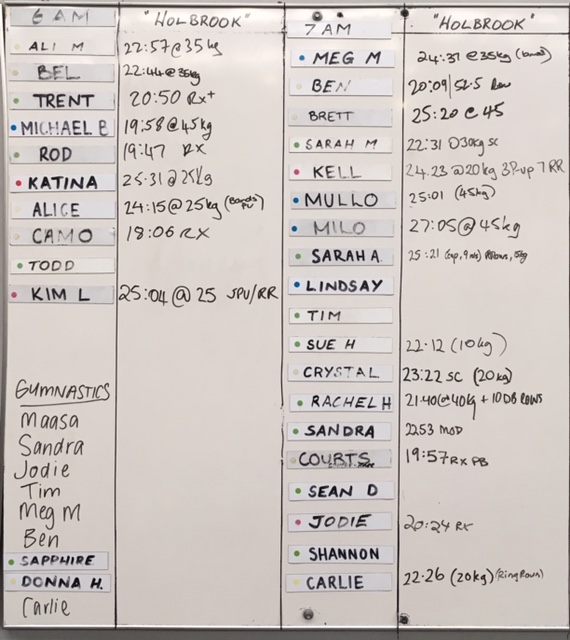 6 AM "HOLBROOK"
ALI M 22:57@35kg
BEL 22:44@35kg
TRENT 20:50 RX+
MICHAEL B 19:58@45kg
ROD 19:47 RX
KATINA 25:31@25kg
ALICE 24:15@25kg (Bands PU)
CAMO 18:06 RX
TODD
KIM L 25:04 @ 25 JPU/RR
GYMNASTICS
Maasa
Sandra
Jodie
Tim
Meg M
Ben
SAPPHIRE
DONNA H.
Carlie
7 AM "HOLBROOK"
MEG M 24:31 @35kg (band)
BEN 20:09
BRETT 25:20 @ 45
SARAH M 22:31 @30kg SC
KELL 24.23 @20kg 3P-up 7RR
MULLO 25:01 (45kg)
MILO 27:05@45kg
SARAH A. 25:21 15kg
LINDSAY
TIM
SUE H 22:12 (10kg)
CRYSTAL 23:22 SC (20kg)
RACHEL H 21:40@40kg + 10 DB ROWS
SANDRA 2253 MOD
COURTS 19:57 RX PB
SEAN D
JODIE 20:24 RX
SHANNON
CARLIE 22:26 (20kg) (Ring Rows)